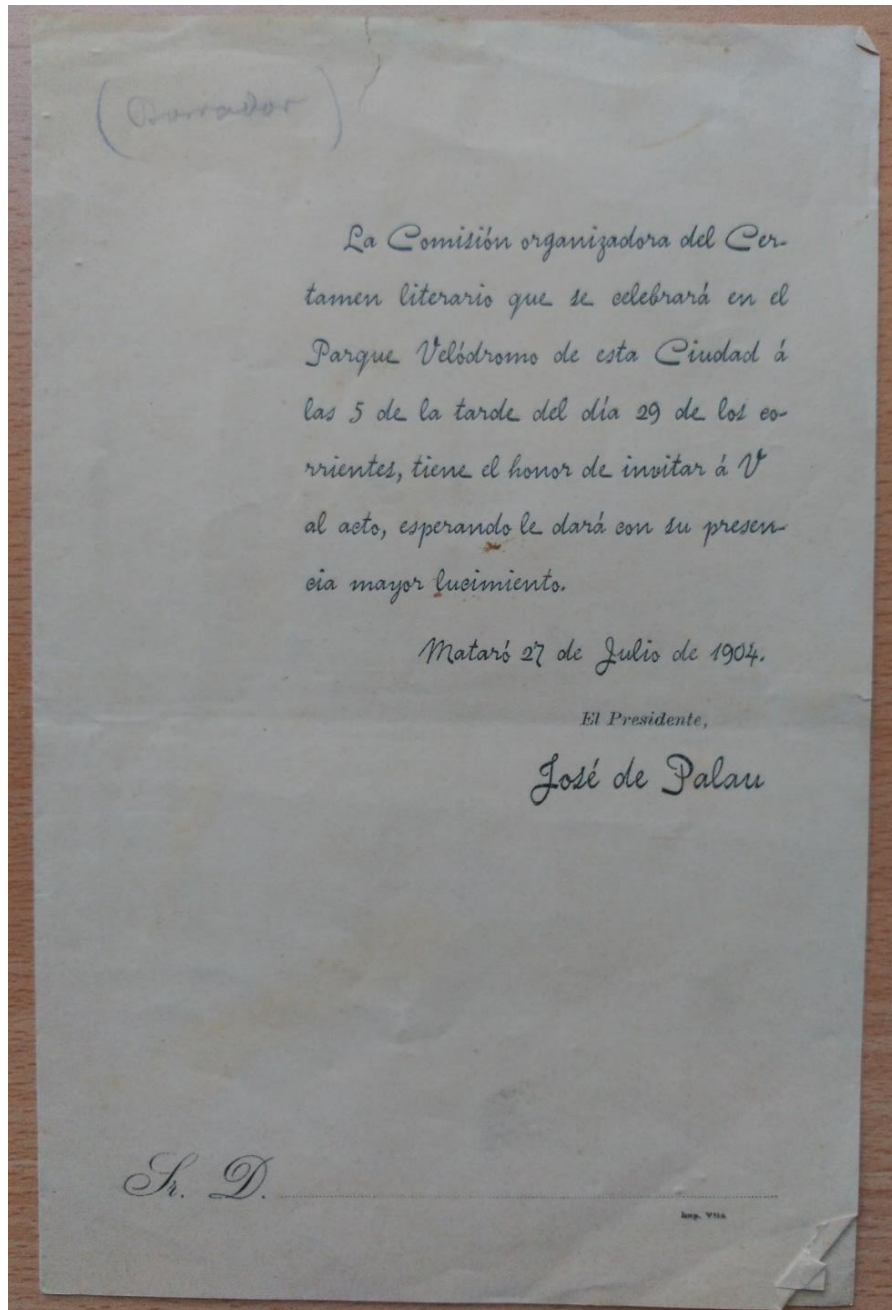 (Borrador)
La Comisión organizadora del Cer-
tamen literario que se celebrará en el
Parque Velódromo de esta Ciudad á
las 5 de la tarde del día 29 de los co-
rrientes, tiene el honor de invitar á V
al acto, esperando le dará con su presen-
cia mayor lucimiento.
Mataró 27 de Julio de 1904.
El Presidente,
José de Palau
Sr. D.
Imp. Vila